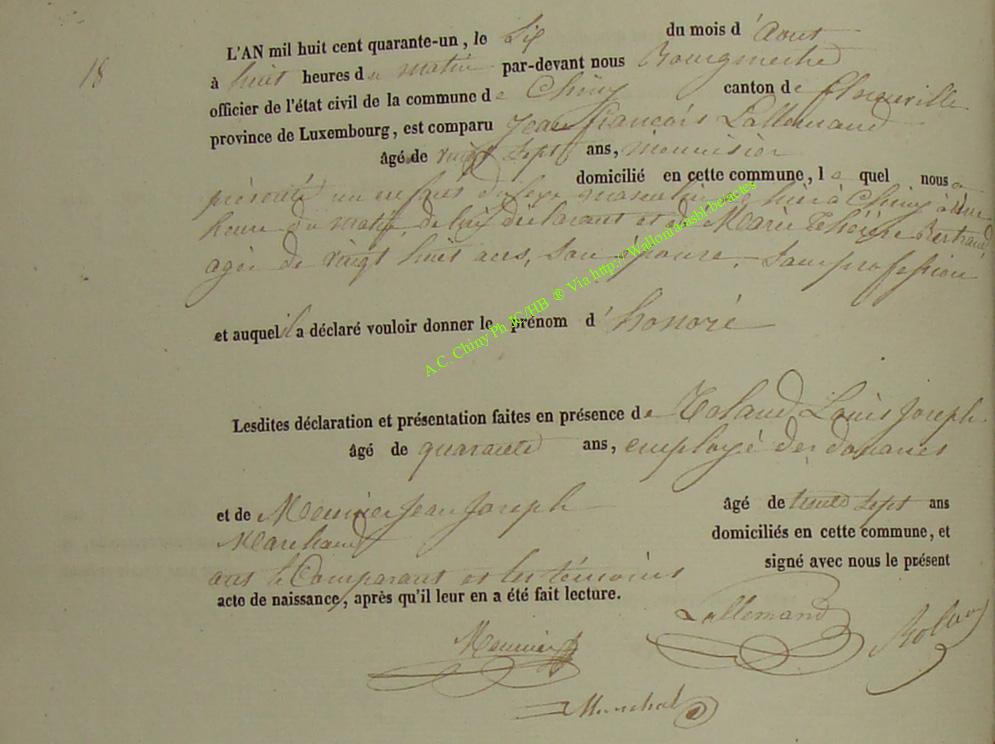 18
L'AN mil huit cent quarante-un, le Six du mois d'Aout
à huit heures du matin par-devant nous Bourgmestre
officier de l'état civil de la commune de Chiny canton de florenville
province de Luxembourg, est comparu Jean françois Lallemand
âgé de vingt sept ans, menuisier
domicilié en cette commune, le quel nous a
présenté un enfant du sexe masculin né hier à Chiny à une
heure du matin de lui déclarant et de Marie Thérèse Bertrand
agée de vingt huit ans, son épouse, sans profession
et auquel il a déclaré vouloir donner le prénom d'honoré
Lesdites déclaration et présentation faites en présence de Roland Louis Joseph
âgé de quarante ans, employé des douanes
et de Meunier Jean Joseph âgé de trente sept ans
Marchand domiciliés en cette commune, et
ont le Comparant et les témoins signé avec nous le présent
acte de naissance, après qu'il leur en a été fait lecture.
Lallemand Roland
Meunier
Marechal
A.C. Chiny Ph JC/HB ® Via http://Wallonia-asbl.be/actes